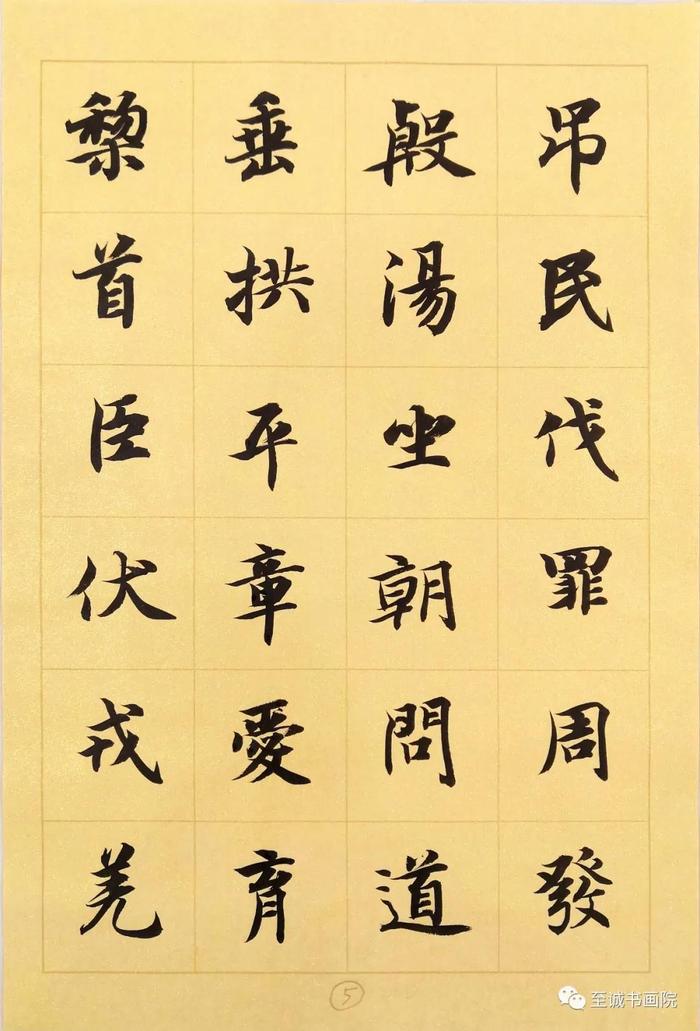 吊民伐罪周發
殷湯坐朝問道
垂拱平章愛育
黎首臣伏戎羌
5
至诚书画院